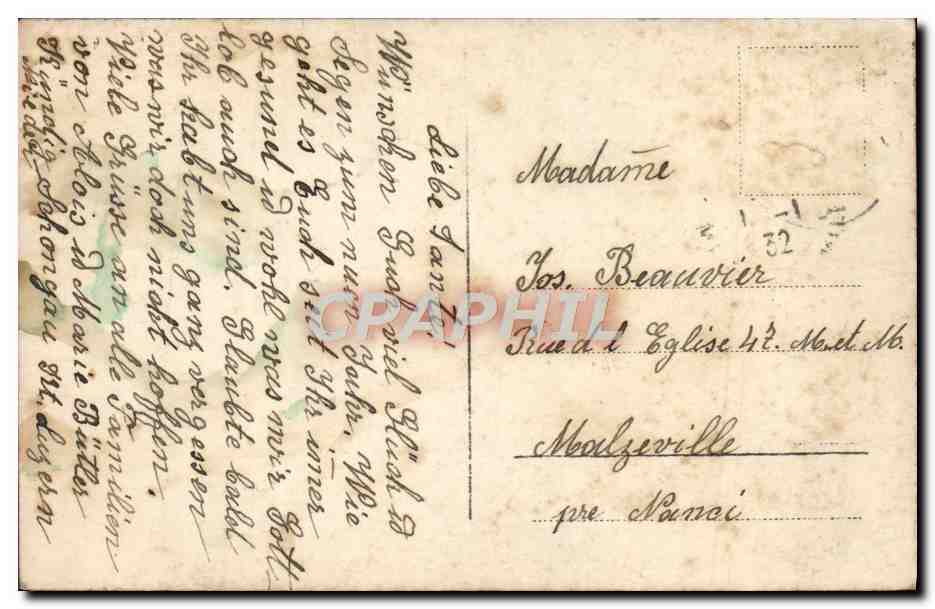 Liebe Tante!
Wünschen Euch viel Glück u
Segen zum neuen Jahr. Wie
geht es Euch seit Ihr imer
gesund u wohl was mir Gott
lob auch sind. Glaubte bald
Ihr habt uns ganz vergessen
was wir doch nicht hoffen.
Viele Grüsse an alle Familien
von Alois u Marie Bütler
Schongau Kt. Luzern
Madame
Jos. Beauvier
Rue d l Eglise 47. M. et M.
Malzeville
pre Nanci
32
CPAPHIL